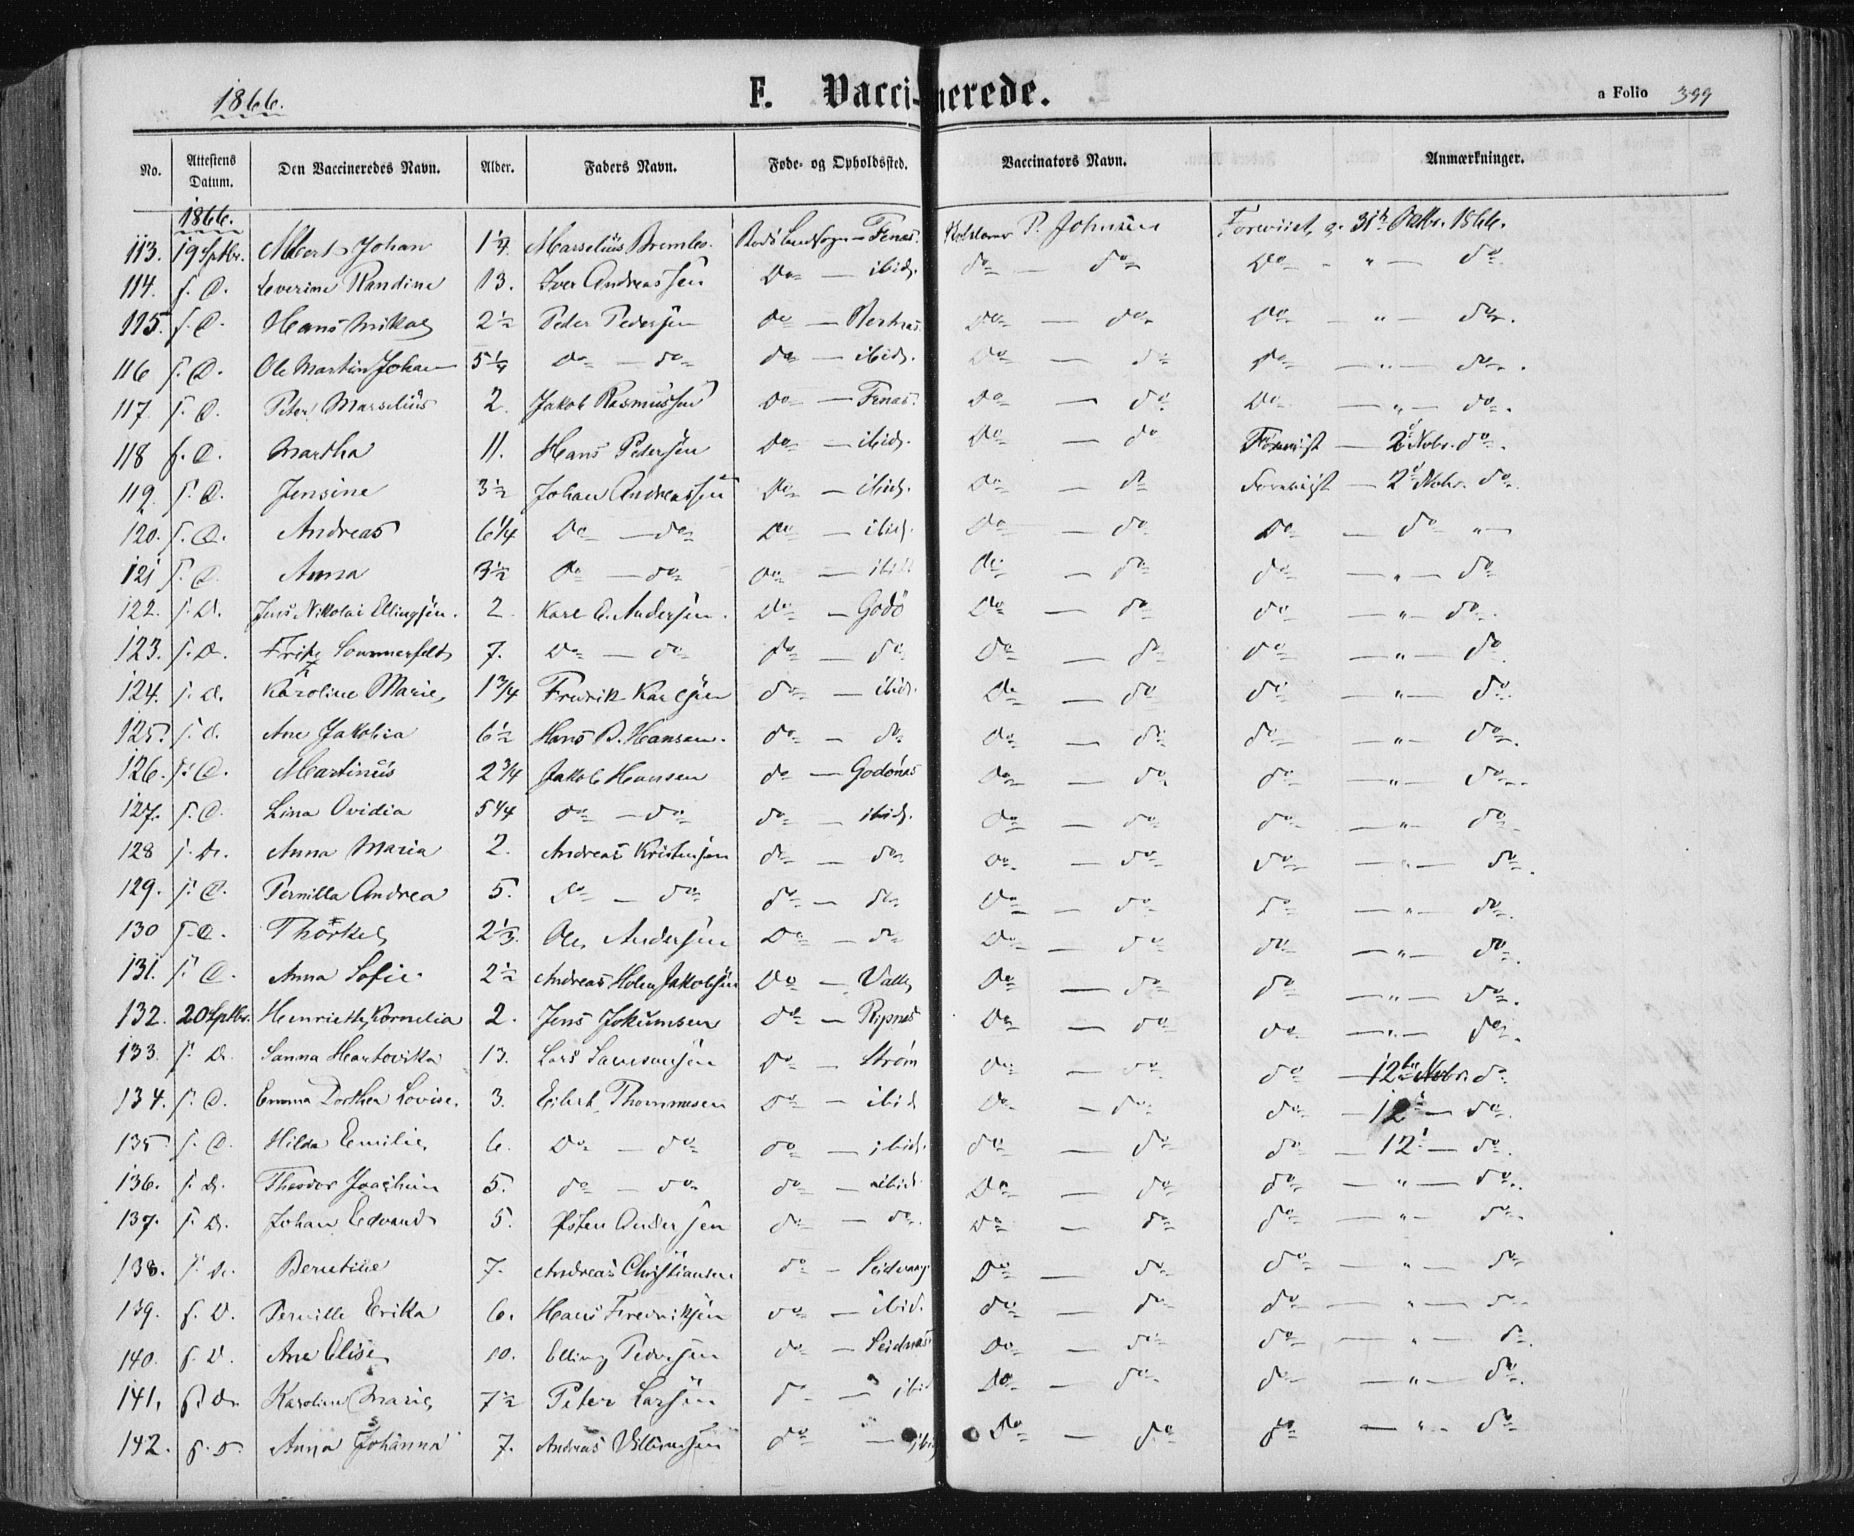 1866. F. Vaccinerede. a Folio 399
No. Attestens Datum. Den Vaccineredes Navn. Alder. Faders Navn. Føde- og Opholdssted. Vaccinators Navn. Anmærkninger.
1866.
113. 19 Sptbr. Albert Johan 1 1/4 Marselius Bremles. Bodø Landsogn — Fenæs. P. Johnsen Forevist, g. 31te Oktbr. 1866.
114. s. D. Severine Randine 13. Iver Andreassen Do — ibid. do — do Do - " — do
115. s. D. Hans Mikal 2 1/2 Peder Pedersen do — Do — do Do - " — do.
116 s. D. Ole Martin Johan 5 1/4 do — do do — ibid. Do — do Do — " — do.
117. s. D. Peter Marselius 2. Jakob Rasmussen Do — Fenæs. Do — do Do — " — do.
118 s. D. Martha 11. Hans Pedersen Do — ibid. Do — do Forevist — 2d Nobr. do.
119. s. D. Jensine 3 1/2 Johan Andreassen Do — ibid. Do — do Forevist — 2d Nobr. do.
120. s. D. Andreas 6 1/4 Do — do Do — ibid. Do — do Do — do " —
121 s. D. Anna 3 1/2 Do — do Do — ibid do — do do — " — do
122. s. D. Jens Nikolai Ellingsen. 2 Karl A. Andersen. Do — Godø Do — do do — " — do.
123. s. D. Fritz Sommerfeldt 7. Do — do do — do Do — do do — " — do
124. s. D. Karoline Marie 1 3/4 Fredrik Karlsen do — ibid. Do — do do — " — do
125. s. D. Ane Jakobia 6 1/2 Hans B. Hansen. do — do Do — do do — " — do.
126. s. D. Martinus 2 3/4 Jakob Hansen do — Godønæs Do — do do — " — do.
127. s. D. Lina Ovidia 5 1/4 do — do do — ibid. Do — do do — " — do
128 s. D. Anna Maria 2. Andreas Kristensen do — do Do — do do — " — do.
129. s. D. Pernilla Andrea 5. do — do do — do Do — do do — " — do.
130 s. D. Thorkel 2 1/3. Ole Andersen Do — do Do — do do — " — do.
131. s. D. Anna Sofie. 2 1/2 Andreas Holm Jakobsen Do — Valle Do — do do — " — do.
132. 20 Sptbr. Henriette Kornelia 2. Jens Jokumsen Do — Ripnes Do — do do — " — do.
133. s. D. Sanna Hartvika 13. Lars do — Strøm Do — do do — 12te Nobr. do
134. s. D. Emma Dorthea Lovise. 3. Eilert Thommesen do — ibid Do — do do — 12 — do.
135 s. D. Hilda Emilie 6. Do — do do — ibid. do — do do — 12 — do.
136. s. D. Theodor Joachim 5. do — do do — ibid. Do — do do — " — do.
137. s. D. Johan Edvard 5. Østen Andersen do — do. Do — do do — " — do.
138. s. D. Berntine 7. Andreas Christiansen do — Do — do do — " — do
139. s. D. Pernille Erika 6. Hans Fredriksen do — ibid. do — do do — " — do
140. s. D. Ane Elise 10. Elling Pedersen do — Seidnæs Do — do do — " — do.
141. s. D. Karoline Marie 7 1/2 Peter Larsen do — ibid Do — do do — " — do.
142. s. D. Anna Johanna 7. Andreas Villumsen do — ibid Do — do do — " — do